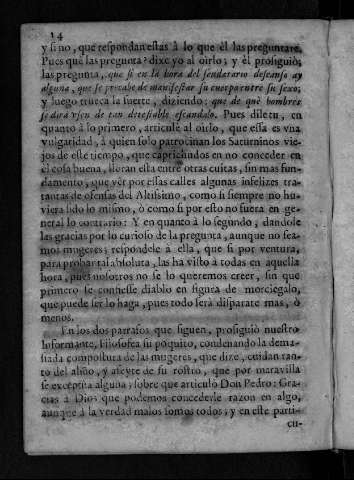 14
y si no, que respondan estas à lo que èl las preguntare.
Pues què las pregunta? dixe yo al oirlo; y èl prosiguiò;
las pregunta, que si en la hora del
alguna, que se precabe de manifestar su cuerpo entre su sexo;
y luego trueca la suerte, diziendo: que de què hombres
se dirà vsen de tan detestable escandalo. Pues diletu, en
quanto à lo primero, articulè al oirlo, que essa es vna
vulgaridad, à quien solo patrocinan los Saturninos vie-
jos de este tiempo, que caprichudos en no conceder en
èl cosa buena, lloran esta entre otras cuitas, sin mas fun-
damento, que vèr por essas calles algunas infelizes tra-
tantas de ofensas del Altissimo, como si siempre no hu-
viera sido lo mismo, ò como si por esto no fuera en ge-
neral lo contrario: Y en quanto à lo segundo, dandole
las gracias por lo curioso de la pregunta, aunque no sea-
mos mugeres; respondele à ella, que si por ventura,
para probar tal absoluta, las hà visto à todas en aquella
hora, pues nosotros no se lo queremos creer, sin que
primero se confiesse diablo en figura de morciegalo,
que puede ser lo haga, pues todo serà disparate mas, ò
menos.
En los dos parrafos que siguen, prosiguiò nuestro
Informante, Filosofea su poquito, condenando la dema-
siada compostura de las mugeres, que dize, cuidan tan-
to del aliño, y afeyte de su rostro, que por maravilla
se exceptua alguna; sobre que articulò Don Pedro: Gra-
cias à Dios que podemos concederle razon en algo,
aunque à la verdad malos somos todos; y en este parti-
cu-